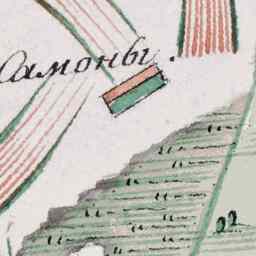 Самоны.
22